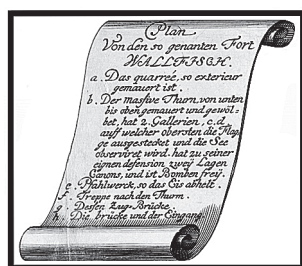 Plan
Von den so genanten Fort
WALLFISCH.
a. Das quarreé, so exterieur
gemauert ist.
b. Der massive Thurn, von unten
bis oben gemauert und gewöl-
bet, hat 2. Gallerien, c. d.
auff welcher obersten die Flag-
ge ausgestecket und die See
observiret wird. hat zu seiner
eignen defension zwey Lagen
Canons, und ist Bomben frey.
e. Pfahlwerck, so das Eis abhelt.
f. Treppe nach den Thurm.
g. Dessen Zug-Brücke.
h. Die brücke und der Eingang.